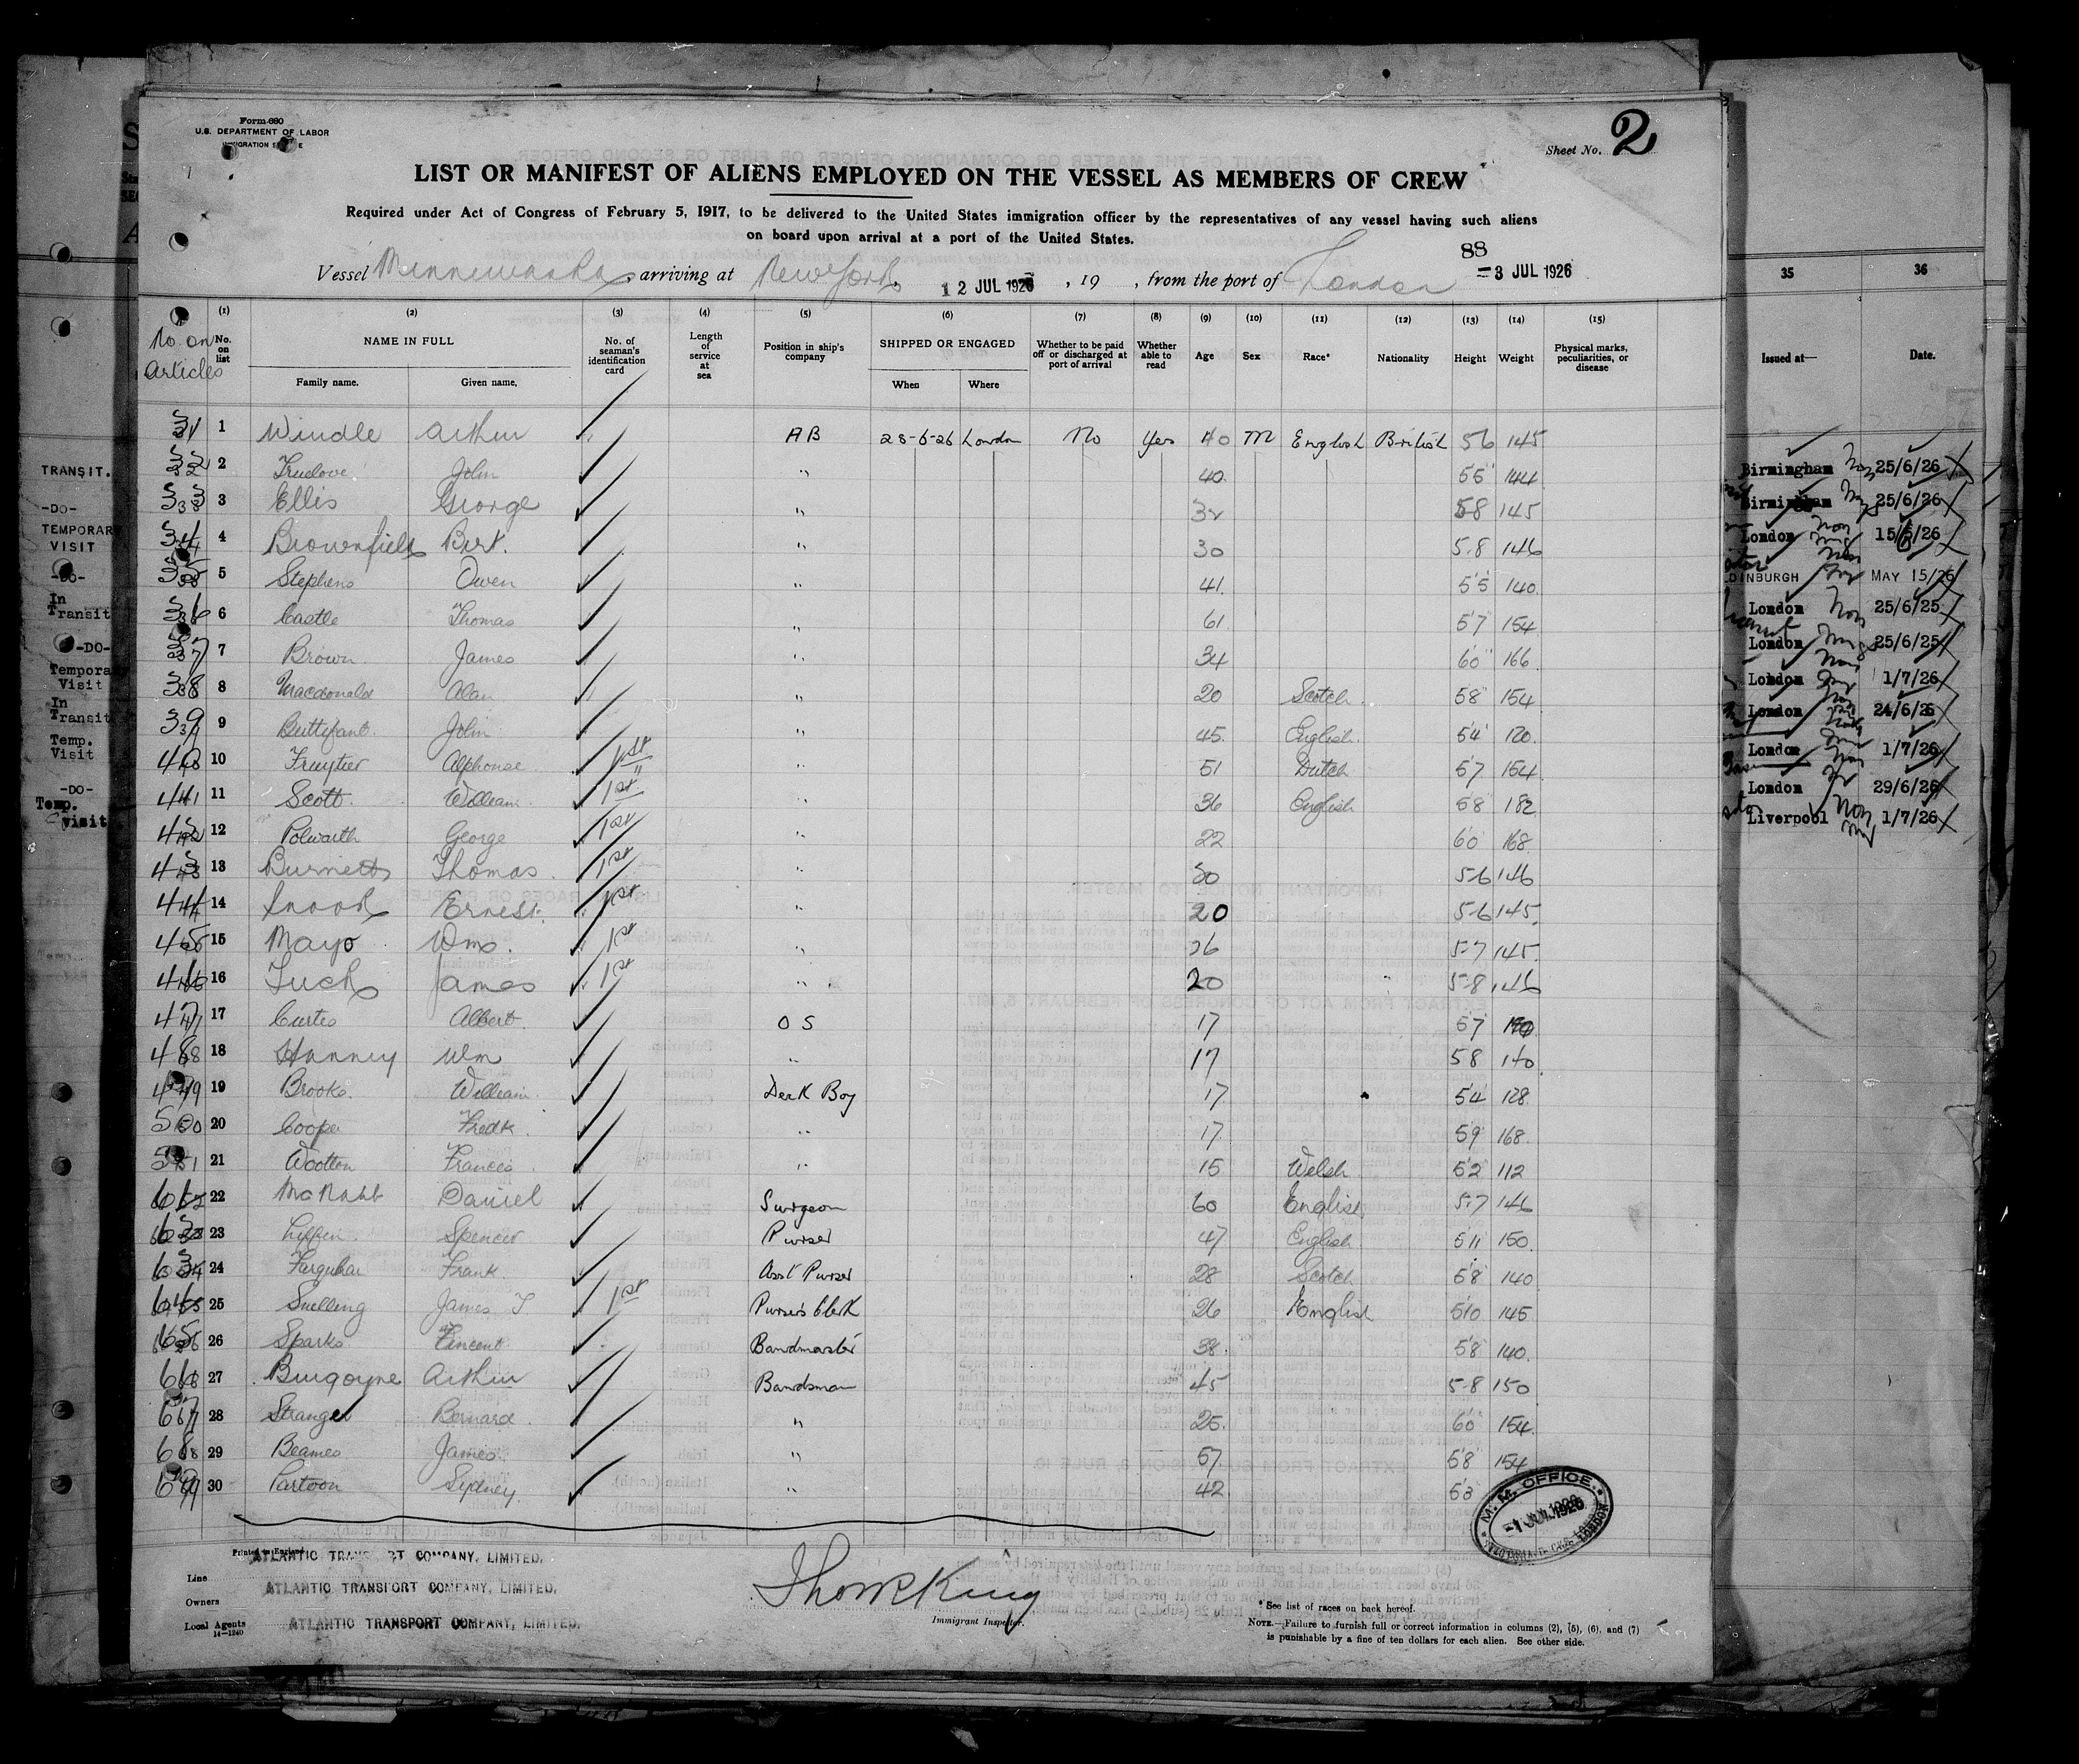 Form 680
U.S. DEPARTMENT OF LABOR
Sheet No. 2
LIST OR MANIFEST OF ALIENS EMPLOYED ON THE VESSEL AS MEMBERS OF CREW
Required under Act of Congress of February 5, 1917, to be delivered to the United States immigration officer by the representatives of any vessel having such aliens
on board upon arrival at a port of the United States.
88
Vessel Minnewaska, arriving at New York, 12 JUL 1926, 19 , from the port of London -3 JUL 1926
No on Articles
(1) No. on list
(2) NAME IN FULL
Family name. Given name.
(3) No. of seaman's identification card
(4) Length of service at sea
(5) Position in ship's company
(6) SHIPPED OR ENGAGED
When Where
(7) Whether to be paid off or discharged at port of arrival
(8) Whether able to read
(9) Age
(10) Sex
(11) Race*
(12) Nationality
(13) Height
(14) Weight
(15) Physical marks, peculiarities, or disease
31 1 Windle Arthur AB 28-6-26 London No Yes 40 M English British 56 145
32 2 Truelove John " 40 55 144
33 3 Ellis George " 58 145
34 4 Brownfield Bert. " 30 5-8 146
35 5 Stephens Owen " 41 55 140
36 6 Castle Thomas " 61 57 154
37 7 Brown James " 34 60 166
38 8 Macdonald Alan " 20 Scotch 58 154
39 9 Buttifant John " 45 English 54 120
40 10 Fruytier Alphonse 1st " 51 Dutch 57 154
41 11 Scott William 1st " 36 English 58 182
42 12 Polwarth George 1st " 22 60 168
43 13 Burnett Thomas 1st " 30 5-6 146
44 14 Ernest 1st " 20 5-6 145
45 15 Mayo Wms. 1st " 26 5-7 145
46 16 Tuck James 1st " 20 5-8 146
47 17 Curtes Albert OS 17 57
48 18 Hanney Wm " 17 58 140
49 19 Brooks William Deck Boy 17 54 128
50 20 Cooper Fredk " 17 59 168
51 21 Wootton Francis " 15 Welsh 52 112
22 McNabb Daniel Surgeon 60 English 5-7 146
23 Spencer Purser 47 English 511 150
24 Farquhar Frank Asst Purser 28 Scotch 58 140
25 Snelling James T 1st Purser's Clerk 26 English 510 145
65 26 Sparks Vincent Bandmaster 38 58 140
66 27 Burgoyne Arthur Bandsman 45 5-8 150
67 28 Stranger Bernard " 25 60 154
68 29 Beames James " 57 58 154
69 30 Partoon Sydney " 42 53
Printed in England
Line ATLANTIC TRANSPORT COMPANY, LIMITED.
Owners ATLANTIC TRANSPORT COMPANY, LIMITED.
Local Agents ATLANTIC TRANSPORT COMPANY, LIMITED.
14-1240
Thos R King
Immigrant Inspector.
M. M. OFFICE.
-1 JUL 1926
LONDON
*See list of races on back hereof.
NOTE.—Failure to furnish full or correct information in columns (2), (5), (6), and (7)
is punishable by a fine of ten dollars for each alien. See other side.
TRANSIT.
-DO-
TEMPORARY
VISIT
-DO-
In
Transit
-DO-
Temporary
Visit
In
Transit
Temp.
Visit
-DO-
Temp.
visit
35 36
Issued at— Date.
Birmingham 25/6/26
Birmingham 25/6/26
London 15/6/26
EDINBURGH MAY 15/26
London 25/6/25
London 25/6/25
London 1/7/26
London 24/6/26
London 1/7/26
London 29/6/26
Liverpool 1/7/26